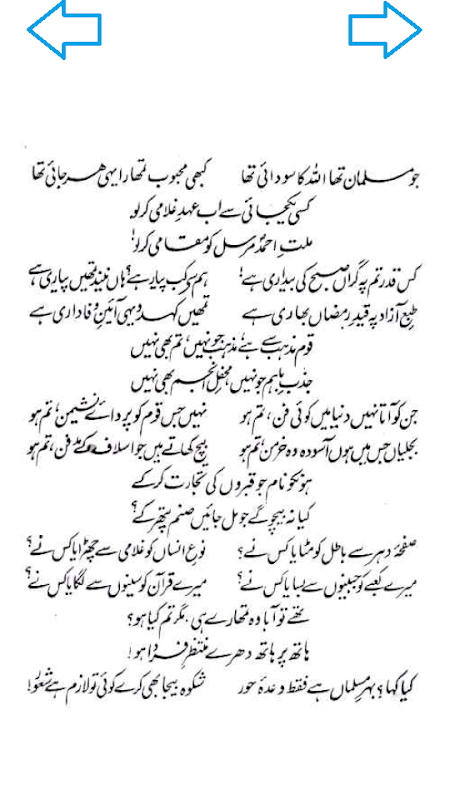 جو مسلمان تھا اللہ کا سودائی تھا کبھی محبوب تمھارا یہی ھرجائی تھا
کسی یکجائی سے اب عہدِ غلامی کر لو
ملتِ احمدِؐ مرسل کو مقامی کر لو!
کس قدر تم پہ گراں صبح کی بیداری ہے! ہم سے کب پیار ہے؟ ہاں نیند تمھیں پیاری ہے
طبعِ آزاد پہ قیدِ رمضاں بھاری ہے تمھیں کہہ دو یہی آئینِ وفاداری ہے
قوم مذہب سے ہے، مذہب جو نہیں، تم بھی نہیں
جذبِ باہم جو نہیں، محفلِ انجم بھی نہیں
جن کو آتا نہیں دنیا میں کوئی فن، تم ہو نہیں جس قوم کو پروائے نشیمن، تم ہو
بجلیاں جس میں ہوں آسودہ وہ خرمن، تم ہو بیچ کھاتے ہیں جو اسلاف کے مدفن، تم ہو
ہو نکو نام جو قبروں کی تجارت کر کے
کیا نہ بیچو گے جو مل جائیں صنم پتھر کے؟
صفحۂ دہر سے باطل کو مٹایا کس نے؟ نوعِ انساں کو غلامی سے چھڑایا کس نے؟
میرے کعبے کو جبینوں سے بسایا کس نے؟ میرے قرآن کو سینوں سے لگایا کس نے؟
تھے تو آبا وہ تمھارے ہی، مگر تم کیا ہو؟
ہاتھ پر ہاتھ دھرے منتظرِ فردا ہو!
کیا کہا؟ بہرِ مسلماں ہے فقط وعدۂ حور شکوہ بیجا بھی کرے کوئی تو لازم ہے شعور!